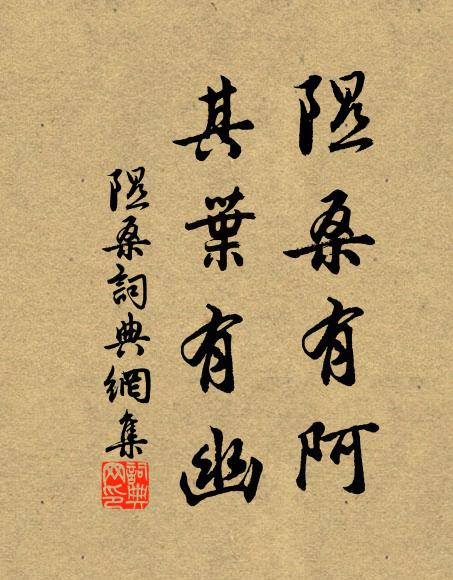 隰桑有阿
其葉有幽
隰桑詞典網集
詞典
网印